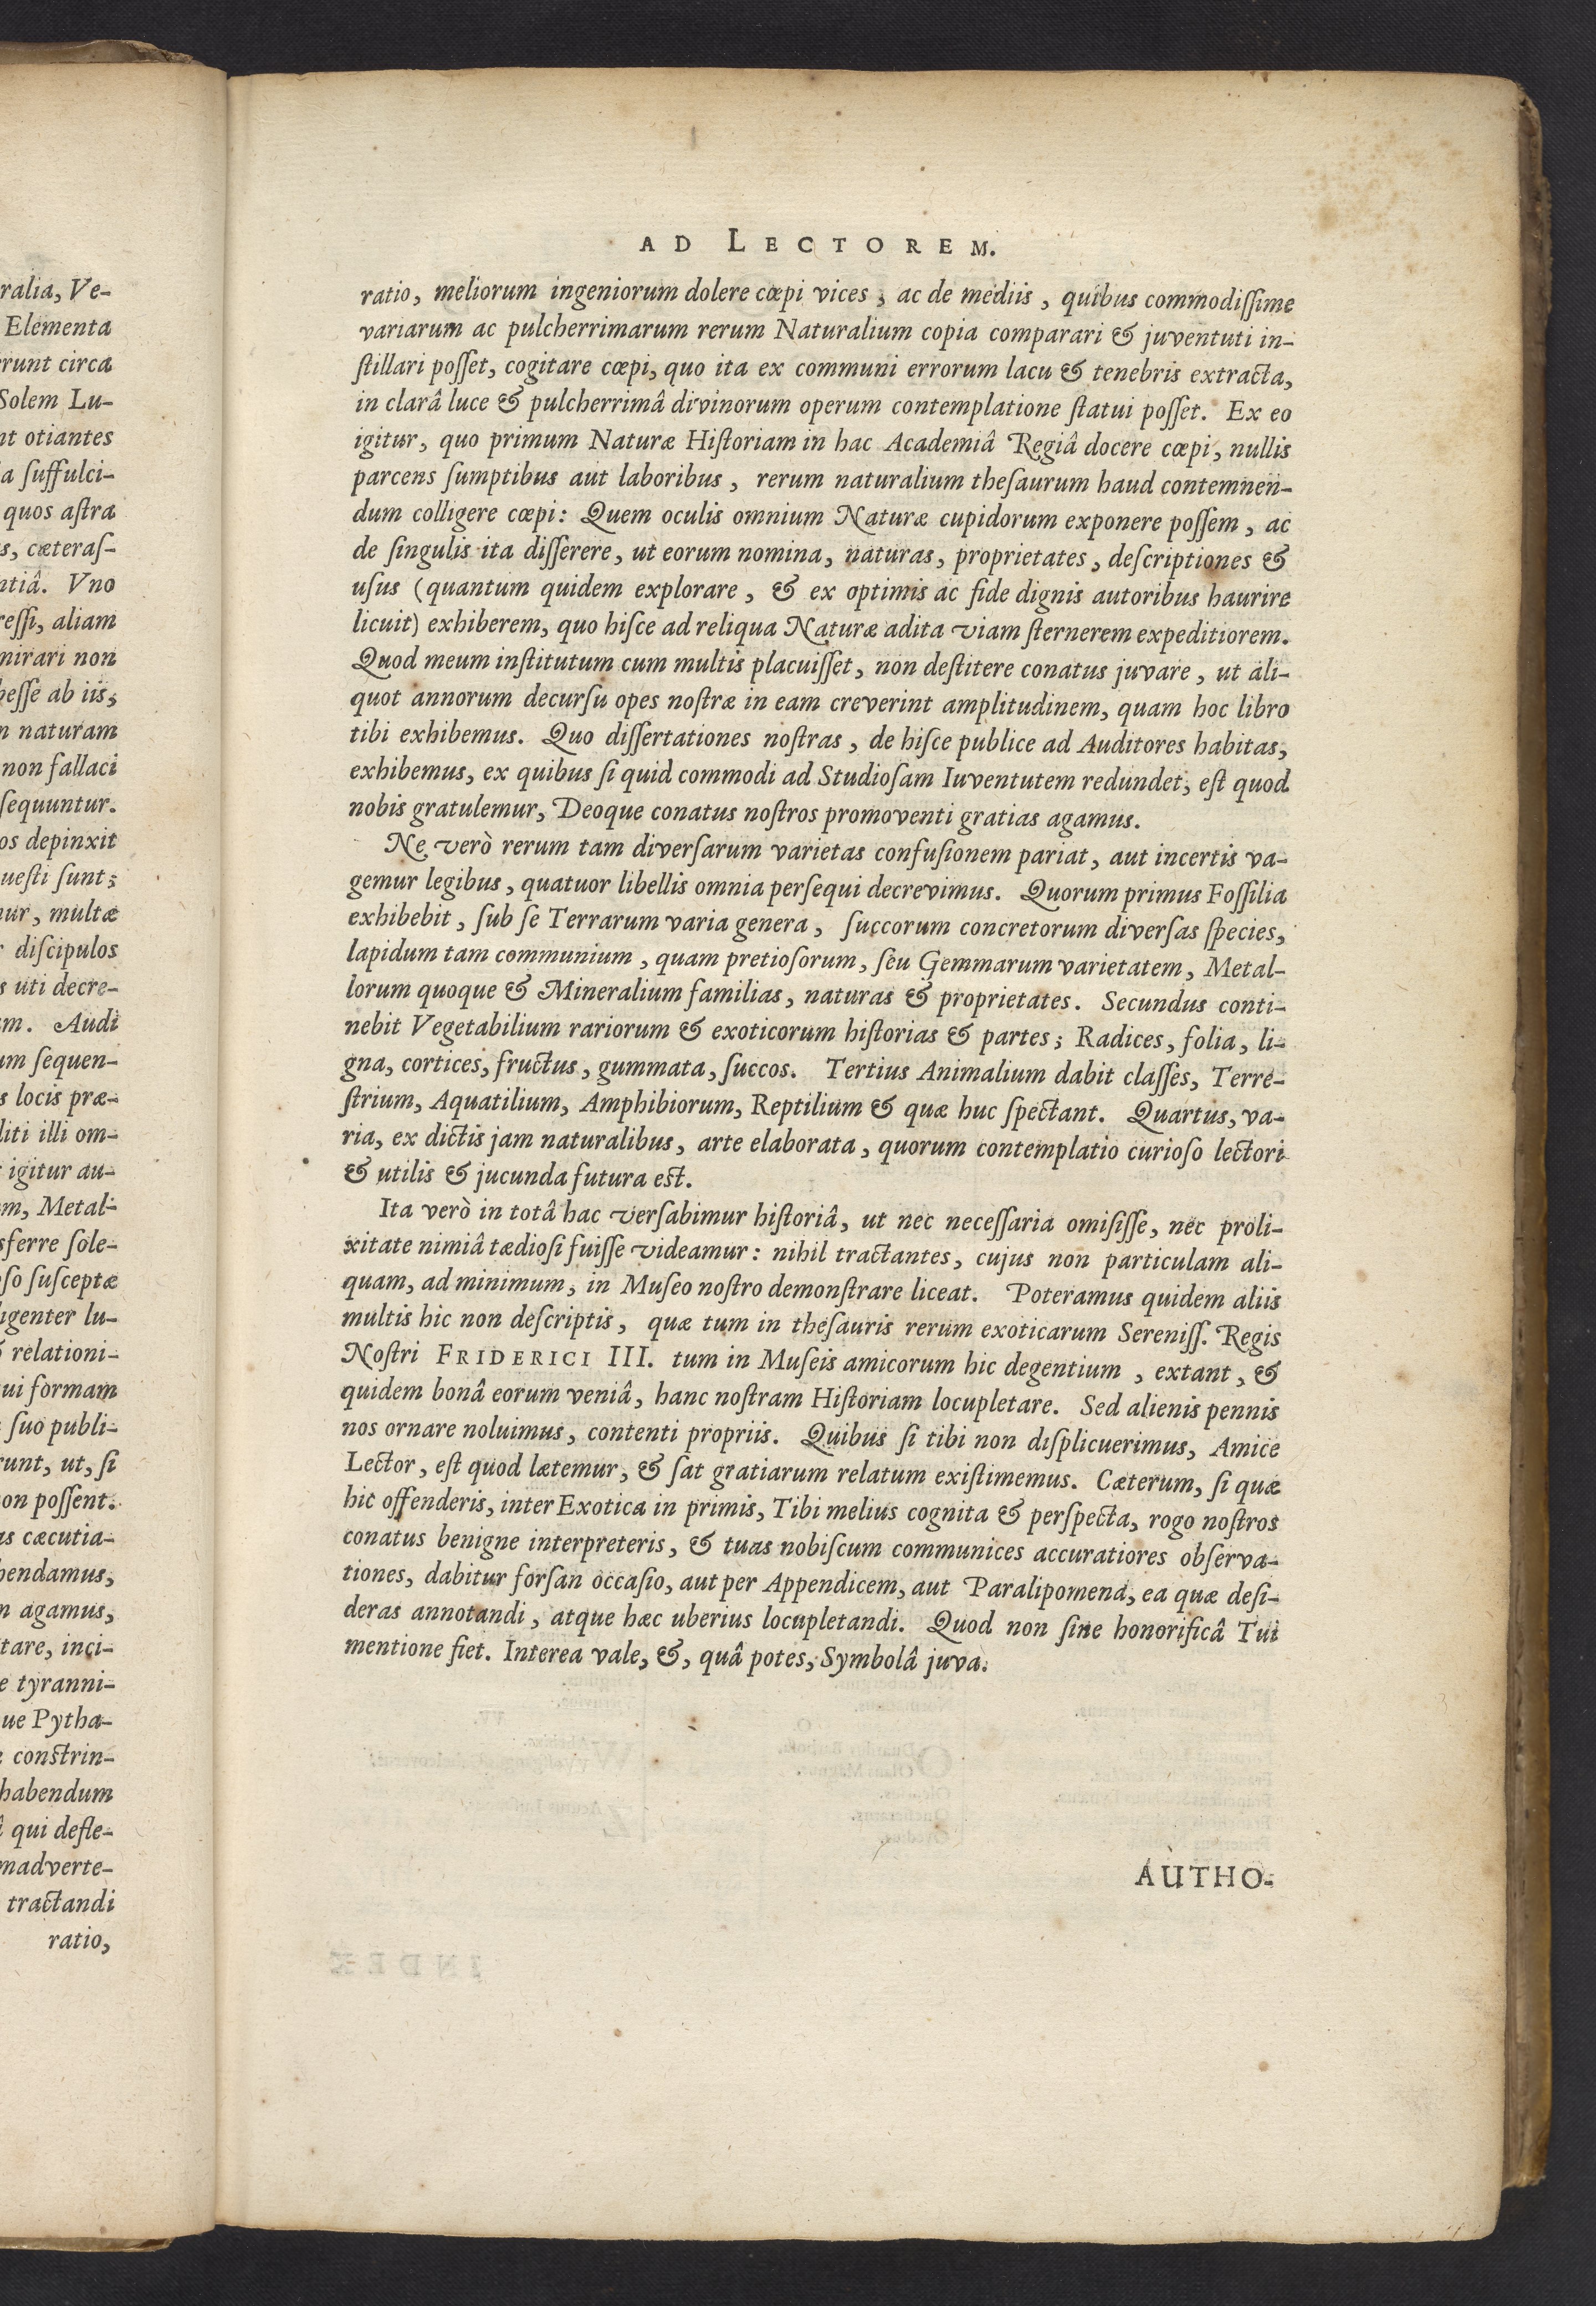 ralia, Ve-
Elementa
runt circa
Solem Lu-
nt otiantes
a ſuffulci-
quos aſtra
s, cæteraſ-
ntiâ. Vno
reſſi, aliam
mirari non
beſſe ab iis;
n naturam
non fallaci
ſequuntur.
os depinxit
ueſti ſunt;
ur, multæ
diſcipulos
s uti decre-
m. Audi
um ſequen-
s locis præ-
liti illi om-
igitur au-
m, Metal-
sferre ſole-
oſo ſuſceptæ
igenter lu-
relationi-
ui formam
ſuo publi-
runt, ut, ſi
on poſſent.
as cæcutia-
hendamus,
n agamus,
tare, inci-
e tyranni-
ue Pytha-
conſtrin-
habendum
qui defle-
madverte-
tractandi
ratio,
AD LECTOREM.
ratio, meliorum ingeniorum dolere cœpi vices; ac de mediis, quibus commodiſſime
variarum ac pulcherrimarum rerum Naturalium copia comparari & juventuti in-
ſtillari poſſet, cogitare cœpi, quo ita ex communi errorum lacu & tenebris extracta,
in clarâ luce & pulcherrimâ divinorum operum contemplatione ſtatui poſſet. Ex eo
igitur, quo primum Naturæ Hiſtoriam in hac Academiâ Regiâ docere cœpi, nullis
parcens ſumptibus aut laboribus, rerum naturalium theſaurum haud contemnen-
dum colligere cœpi: Quem oculis omnium Naturæ cupidorum exponere poſſem, ac
de ſingulis ita diſſerere, ut eorum nomina, naturas, proprietates, deſcriptiones &
uſus (quantum quidem explorare, & ex optimis ac fide dignis autoribus haurire
licuit) exhiberem, quo hiſce ad reliqua Naturæ adita viam ſternerem expeditiorem.
Quod meum inſtitutum cum multis placuiſſet, non deſtitere conatus juvare, ut ali-
quot annorum decurſu opes noſtræ in eam creverint amplitudinem, quam hoc libro
tibi exhibemus. Quo diſſertationes noſtras, de hiſce publice ad Auditores habitas,
exhibemus, ex quibus ſi quid commodi ad Studioſam Iuventutem redundet, eſt quod
nobis gratulemur, Deoque conatus noſtros promoventi gratias agamus.
Ne verò rerum tam diverſarum varietas confuſionem pariat, aut incertis va-
gemur legibus, quatuor libellis omnia perſequi decrevimus. Quorum primus Foſſilia
exhibebit, ſub ſe Terrarum varia genera, ſuccorum concretorum diverſas ſpecies,
lapidum tam communium, quam pretioſorum, ſeu Gemmarum varietatem, Metal-
lorum quoque & Mineralium familias, naturas & proprietates. Secundus conti-
nebit Vegetabilium rariorum & exoticorum hiſtorias & partes; Radices, folia, li-
gna, cortices, fructus, gummata, ſuccos. Tertius Animalium dabit claſſes, Terre-
ſtrium, Aquatilium, Amphibiorum, Reptilium & quæ huc ſpectant. Quartus, va-
ria, ex dictis jam naturalibus, arte elaborata, quorum contemplatio curioſo lectori
& utilis & jucunda futura eſt.
Ita verò in totâ hac verſabimur hiſtoriâ, ut nec neceſſaria omiſiſſe, nec proli-
xitate nimiâ tædioſi fuiſſe videamur: nihil tractantes, cujus non particulam ali-
quam, ad minimum, in Muſeo noſtro demonſtrare liceat. Poteramus quidem aliis
multis hic non deſcriptis, quæ tum in theſauris rerum exoticarum Sereniſſ. Regis
Noſtri FRIDERICI III. tum in Muſeis amicorum hic degentium, extant, &
quidem bonâ eorum veniâ, hanc noſtram Hiſtoriam locupletare. Sed alienis pennis
nos ornare noluimus, contenti propriis. Quibus ſi tibi non diſplicuerimus, Amice
Lector, eſt quod lætemur, & ſat gratiarum relatum exiſtimemus. Cæterum, ſi quæ
hic offenderis, inter Exotica in primis, Tibi melius cognita & perſpecta, rogo noſtros
conatus benigne interpreteris, & tuas nobiſcum communices accuratiores obſerva-
tiones, dabitur forſan occaſio, aut per Appendicem, aut Paralipomena, ea quæ deſi-
deras annotandi, atque hæc uberius locupletandi. Quod non ſine honorificâ Tui
mentione fiet. Interea vale, &, quâ potes, Symbolâ juva.
AUTHO-